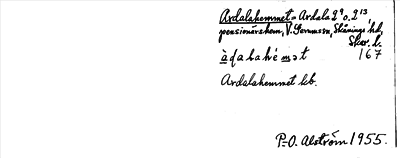 Ardalahemmet = Ardala 2⁹ o. 2¹³,
pensionärshem, V. Gerumsn, Skånings hd,
Skar. l.
àdalahémət 167
Ardalahemmet kb.
P-O. Alström 1955.